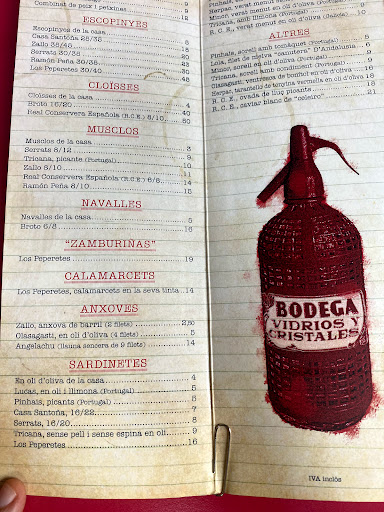 Combinat de peix i petxines 9
ESCOPINYES
Escopinyes de la casa 5
Casa Santoña 25/35
Zallo 38/45
Serrats 30/35
Ramón Peña 25/35
Los Peperetes 30/40
CLOÏSSES
Cloïsses de la casa 4
Broto 16/20
Real Conservera Española (R.C.E.) 8/10 50
MUSCLOS
Musclos de la casa 3
Serrats 8/12 9
Tricana, picante (Portugal) 10
Zallo 8/10 11
Real Conservera Española (R.C.E) 6/8 14
Ramón Peña 8/10 15
NAVALLES
Navalles de la casa 5
Broto 6/8 16
"ZAMBURIÑAS"
Los Peperetes 19
CALAMARCETS
Los Peperetes, calamarcets en la seva tinta 14
ANXOVES
Zallo, anxova de barril (2 filets) 2,50
Olasagasti, en oli d'oliva (4 filets) 5
Angelachu (llauna sencera de 9 filets) 14
SARDINETES
En oli d'oliva de la casa 4
Lucas, en oli i llimona (Portugal) 5
Pinhais, picants (Portugal) 5
Casa Santoña, 16/22 7
Serrats, 16/20 8
Tricana, sense pell i sense espina en oli 9
Los Peperetes 16
Minor, verat menut en oli d'oliva (Portugal)
Tricana, amb llimona (Portugal) 9
R. C. E., verat menut en oli d'oliva (Galeta) 10
ALTRES
Pinhais, sorell amb tomàquet (Portugal)
Lola, filet de melva "canutera" D'Andalusia 6
Minor, sorell en oli d'oliva (Portugal) 6
Tricana, sorell amb condiment (Portugal) 9
Olasagasti, ventresca de bonítol en oli d'oliva 16
R. C. E., ovada de lluç picant 18
R. C. E., caviar blanc de "celeiro" 21
BODEGA
VIDRIOS Y
CRISTALES
IVA inclòs